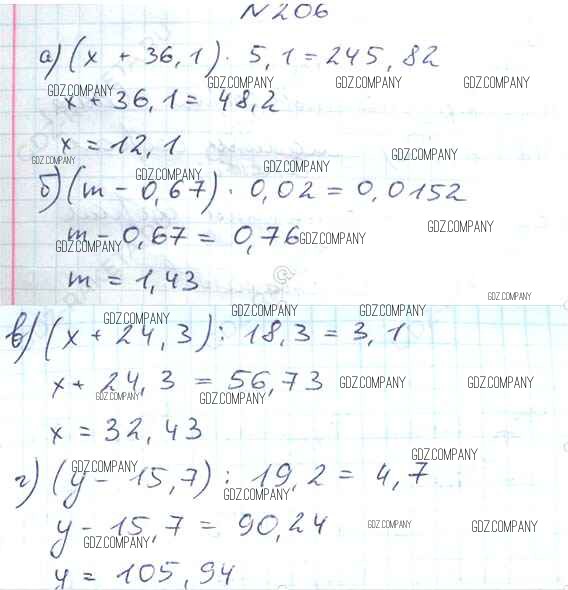 № 206
а) (x + 36,1) · 5,1 = 245,82
GDZ.COMPANY GDZ.COMPANY GDZ.COMPANY GDZ.COMPANY
x + 36,1 = 48,2
x = 12,1
GDZ.COMPANY GDZ.COMPANY GDZ.COMPANY GDZ.COMPANY
б) (m - 0,67) · 0,02 = 0,0152
m - 0,67 = 0,76
GDZ.COMPANY GDZ.COMPANY GDZ.COMPANY
m = 1,43
GDZ.COMPANY
GDZ.COMPANY GDZ.COMPANY GDZ.COMPANY
в) (x + 24,3) : 18,3 = 3,1
x + 24,3 = 56,73
GDZ.COMPANY GDZ.COMPANY GDZ.COMPANY GDZ.COMPANY
x = 32,43
GDZ.COMPANY GDZ.COMPANY
г) (y - 15,7) : 19,2 = 4,7
GDZ.COMPANY
y - 15,7 = 90,24
GDZ.COMPANY GDZ.COMPANY GDZ.COMPANY
y = 105,94